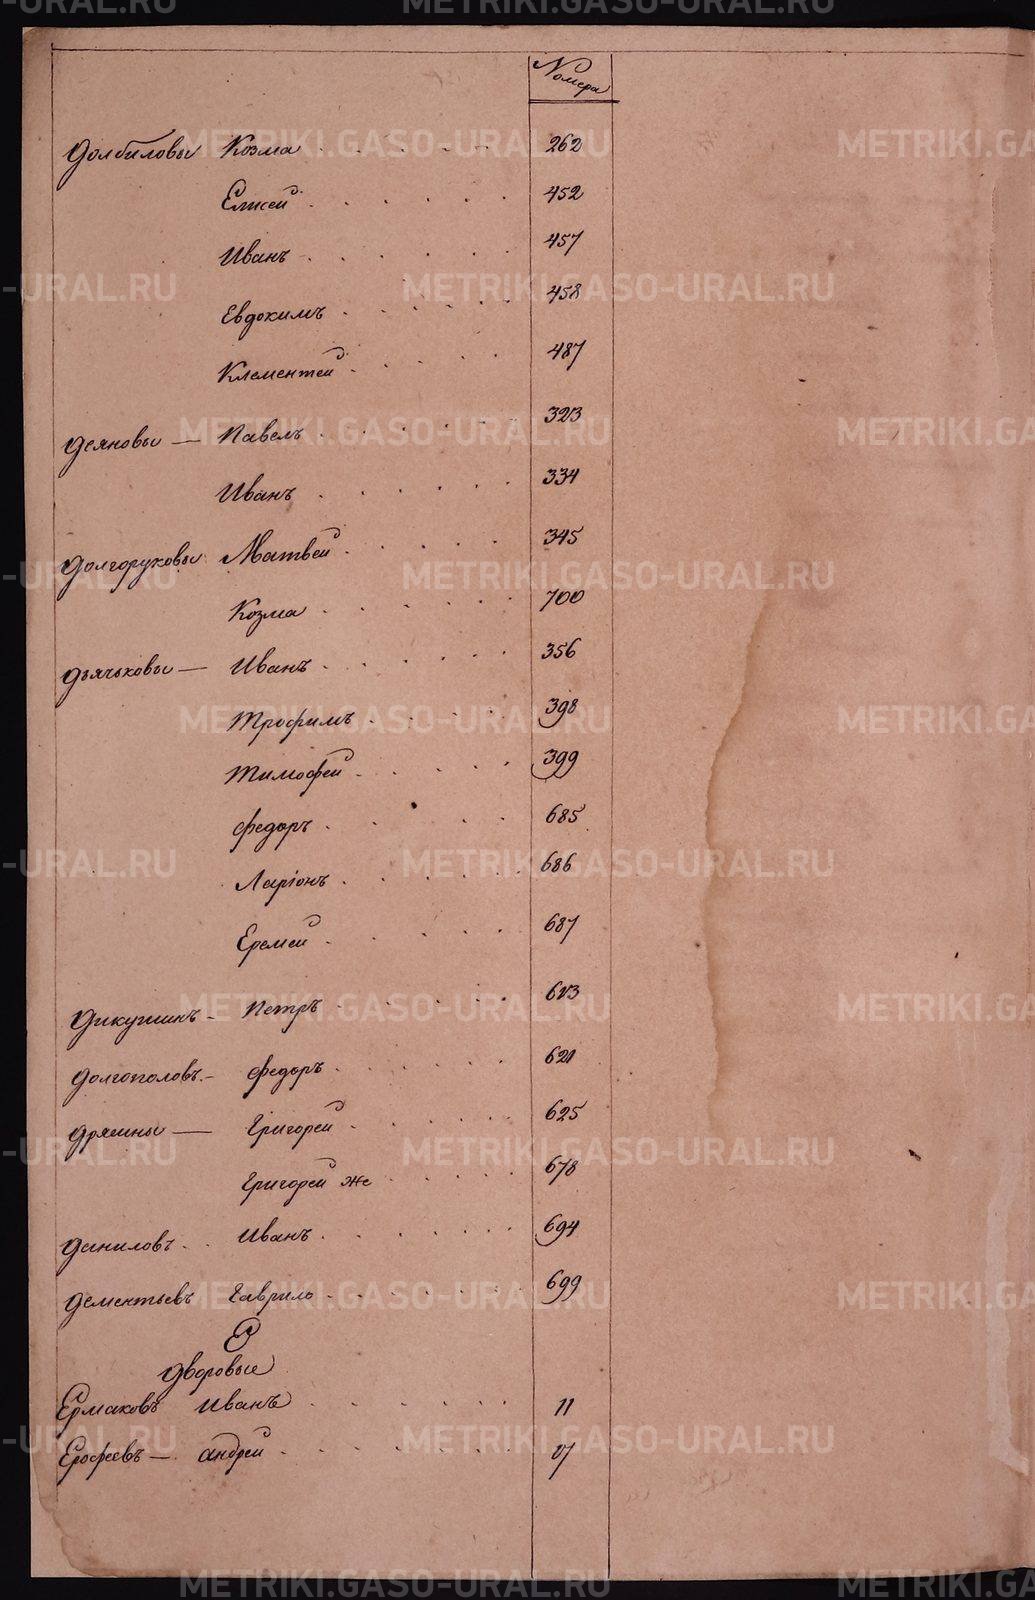 METRIKI.GASO-URAL.RU
Номера
Долбиловы Козма 262
Елисей 452
Иванъ 457
Евдокимъ 458
Клементей 487
Деяновы — Павелъ 323
Иванъ 334
Долгоруковы Матвей 345
Козма 700
Дьячьковы — Иванъ 356
Трофимъ 398
Тимофей 399
Федоръ 685
Ларіонъ 686
Еремей 687
Дикушинъ — Петръ 613
Долгополовъ — Федоръ 621
Григорей 625
Григорей же 678
Даниловъ Иванъ 694
Дементьевъ Гаврило 699
Е
Дворовые
Ермаковъ Иванъ 11
Ерофеевъ — Андрей